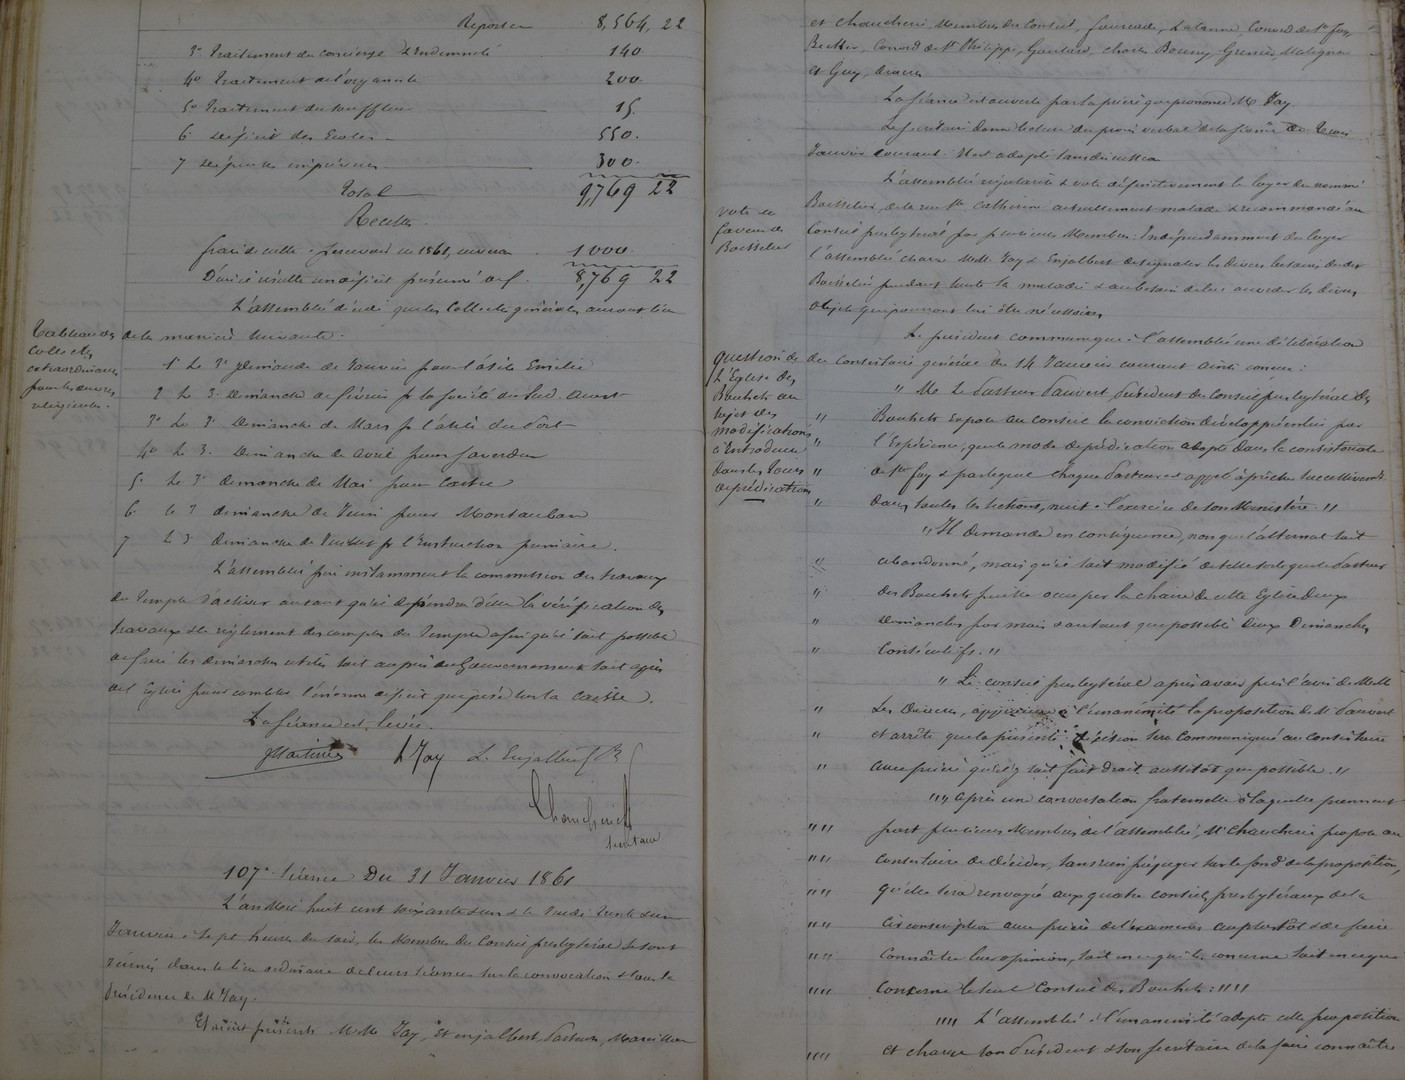 Reporter 8,564,22
3° Traitement du concierge & Indemnité 140
4° Traitement de l'organiste 200.
5° Traitement du souffleur 15.
6° Déficit des Ecoles 550.
7 Dépenses imprévues 300.
Total 9,769 22
Recettes.
frais de culte 1861, 1000.
D'où il résulte un déficit présumé de f. 8,769 22
L'assemblée décide que les Collectes générales auront lieu
Tableau des
collectes
extraordinaires
pour les œuvres
religieuses.
de la manière suivante.
1° Le 3° Dimanche de Janvier pour l'asile Emilie
2 Le 3. Dimanche de février pr la société du Sud-Ouest
3° Le 3° Dimanche de Mars pr l'asile de Port
4° Le 3. Dimanche de Avril pour Saverdun
5° Le 3° Dimanche de Mai pour Castres
6. Le 3 dimanche de Juin pour Montauban
7. Le 3 dimanche de Juillet pr l'Instruction primaire.
L'assemblée prie instamment la commission des travaux
du Temple d'activer autant qu'il dépendra d'elle la vérification des
travaux & le règlement des comptes du Temple afin qu'il soit possible
de faire les démarches utiles soit auprès du Gouvernement soit après
de l'Eglise pour combler l'énorme déficit qui pèse sur la caisse.
La séance est levée.
JMartines L Jay L. Enjalbert
Chaucherie
secrétaire
107° séance Du 31 Janvier 1861
L'an Mil huit cent soixante un & le Jeudi trente un
Janvier à sept heures du soir, les Membres du Conseil presbytéral se sont
réunis dans le lieu ordinaire de leurs séances sur la convocation & sous la
Présidence de M Jay.
Etaient présents M.M. Jay, et Enjalbert, Pasteurs,
et Chaucherie, Membres du Conseil, Lalanne, Conord de Ste Foy,
Becker, Conord de St Philippe, Charles Bonny,
et Guy, diacres
La séance est ouverte par la prière que prononce M. Jay.
Le secrétaire donne lecture du procès verbal de la séance de trois
Janvier courant. Il est adopté sans discussion
L'assemblée régularise & vote définitivement le loyer du nommé
vote en
faveur de
Boisselier
Boisselier, de la rue Ste Catherine actuellement malade & recommandé au
Conseil presbytéral par plusieurs Membres. Indépendamment du loyer
l'assemblée charge MM. Jay & Enjalbert de signaler les divers besoins dudit
Boisselier pendant toute sa maladie & au besoin de lui accorder les divers
objets qui pourront lui être nécessaires
Le président communique à l'assemblée une délibération
Question de
l'Eglise des
Bouhets au
sujet des
modifications
à Introduire
dans les Tours
de prédication
du Consistoire générale du 14 Janvier courant ainsi conçue :
" Mr Le Pasteur Pauvert Président du Conseil presbytéral des
" Bouhets expose au conseil la conviction développée en lui par
" l'Expérience, que le mode de prédication adopté dans la consistoriale
" de Ste Foy & par lequel chaque Pasteur est appelé à prêcher successivement
" dans toutes les sections, nuit à l'exercice de son Ministère. "
" Il demande en conséquence, non que l'alternat soit
" abandonné, mais qu'il soit modifié de telle sorte que le Pasteur
" des Bouhets puisse occuper la chaire de cette Eglise deux
" Dimanches par mois & autant que possible deux Dimanches
" Consécutifs. "
" Le conseil presbytéral après avoir pris l'avis de MM
" Les Diacres, à l'unanimité la proposition de Mr Pauvert
" et arrête que la présente décision sera communiquée au Consistoire
" avec prière qu'il y soit fait droit aussitôt que possible. "
"" Après une conversation fraternelle à laquelle prennent
"" part plusieurs Membres de l'assemblée, Mr Chaucherie propose au
"" Consistoire de décider, sans rien préjuger sur le fond de la proposition,
"" qu'elle sera renvoyée aux quatre conseils presbytéraux de la
"" Circonscription avec prière de l'examiner au plus tôt & de faire
"" Connaître leur opinion, soit en ce qui les concerne soit en ce qui
"" Concerne le seul Conseil des Bouhets. """
"" L'assemblée à l'unanimité adopte cette proposition
"" et charge son Président & son secrétaire de la faire connaître